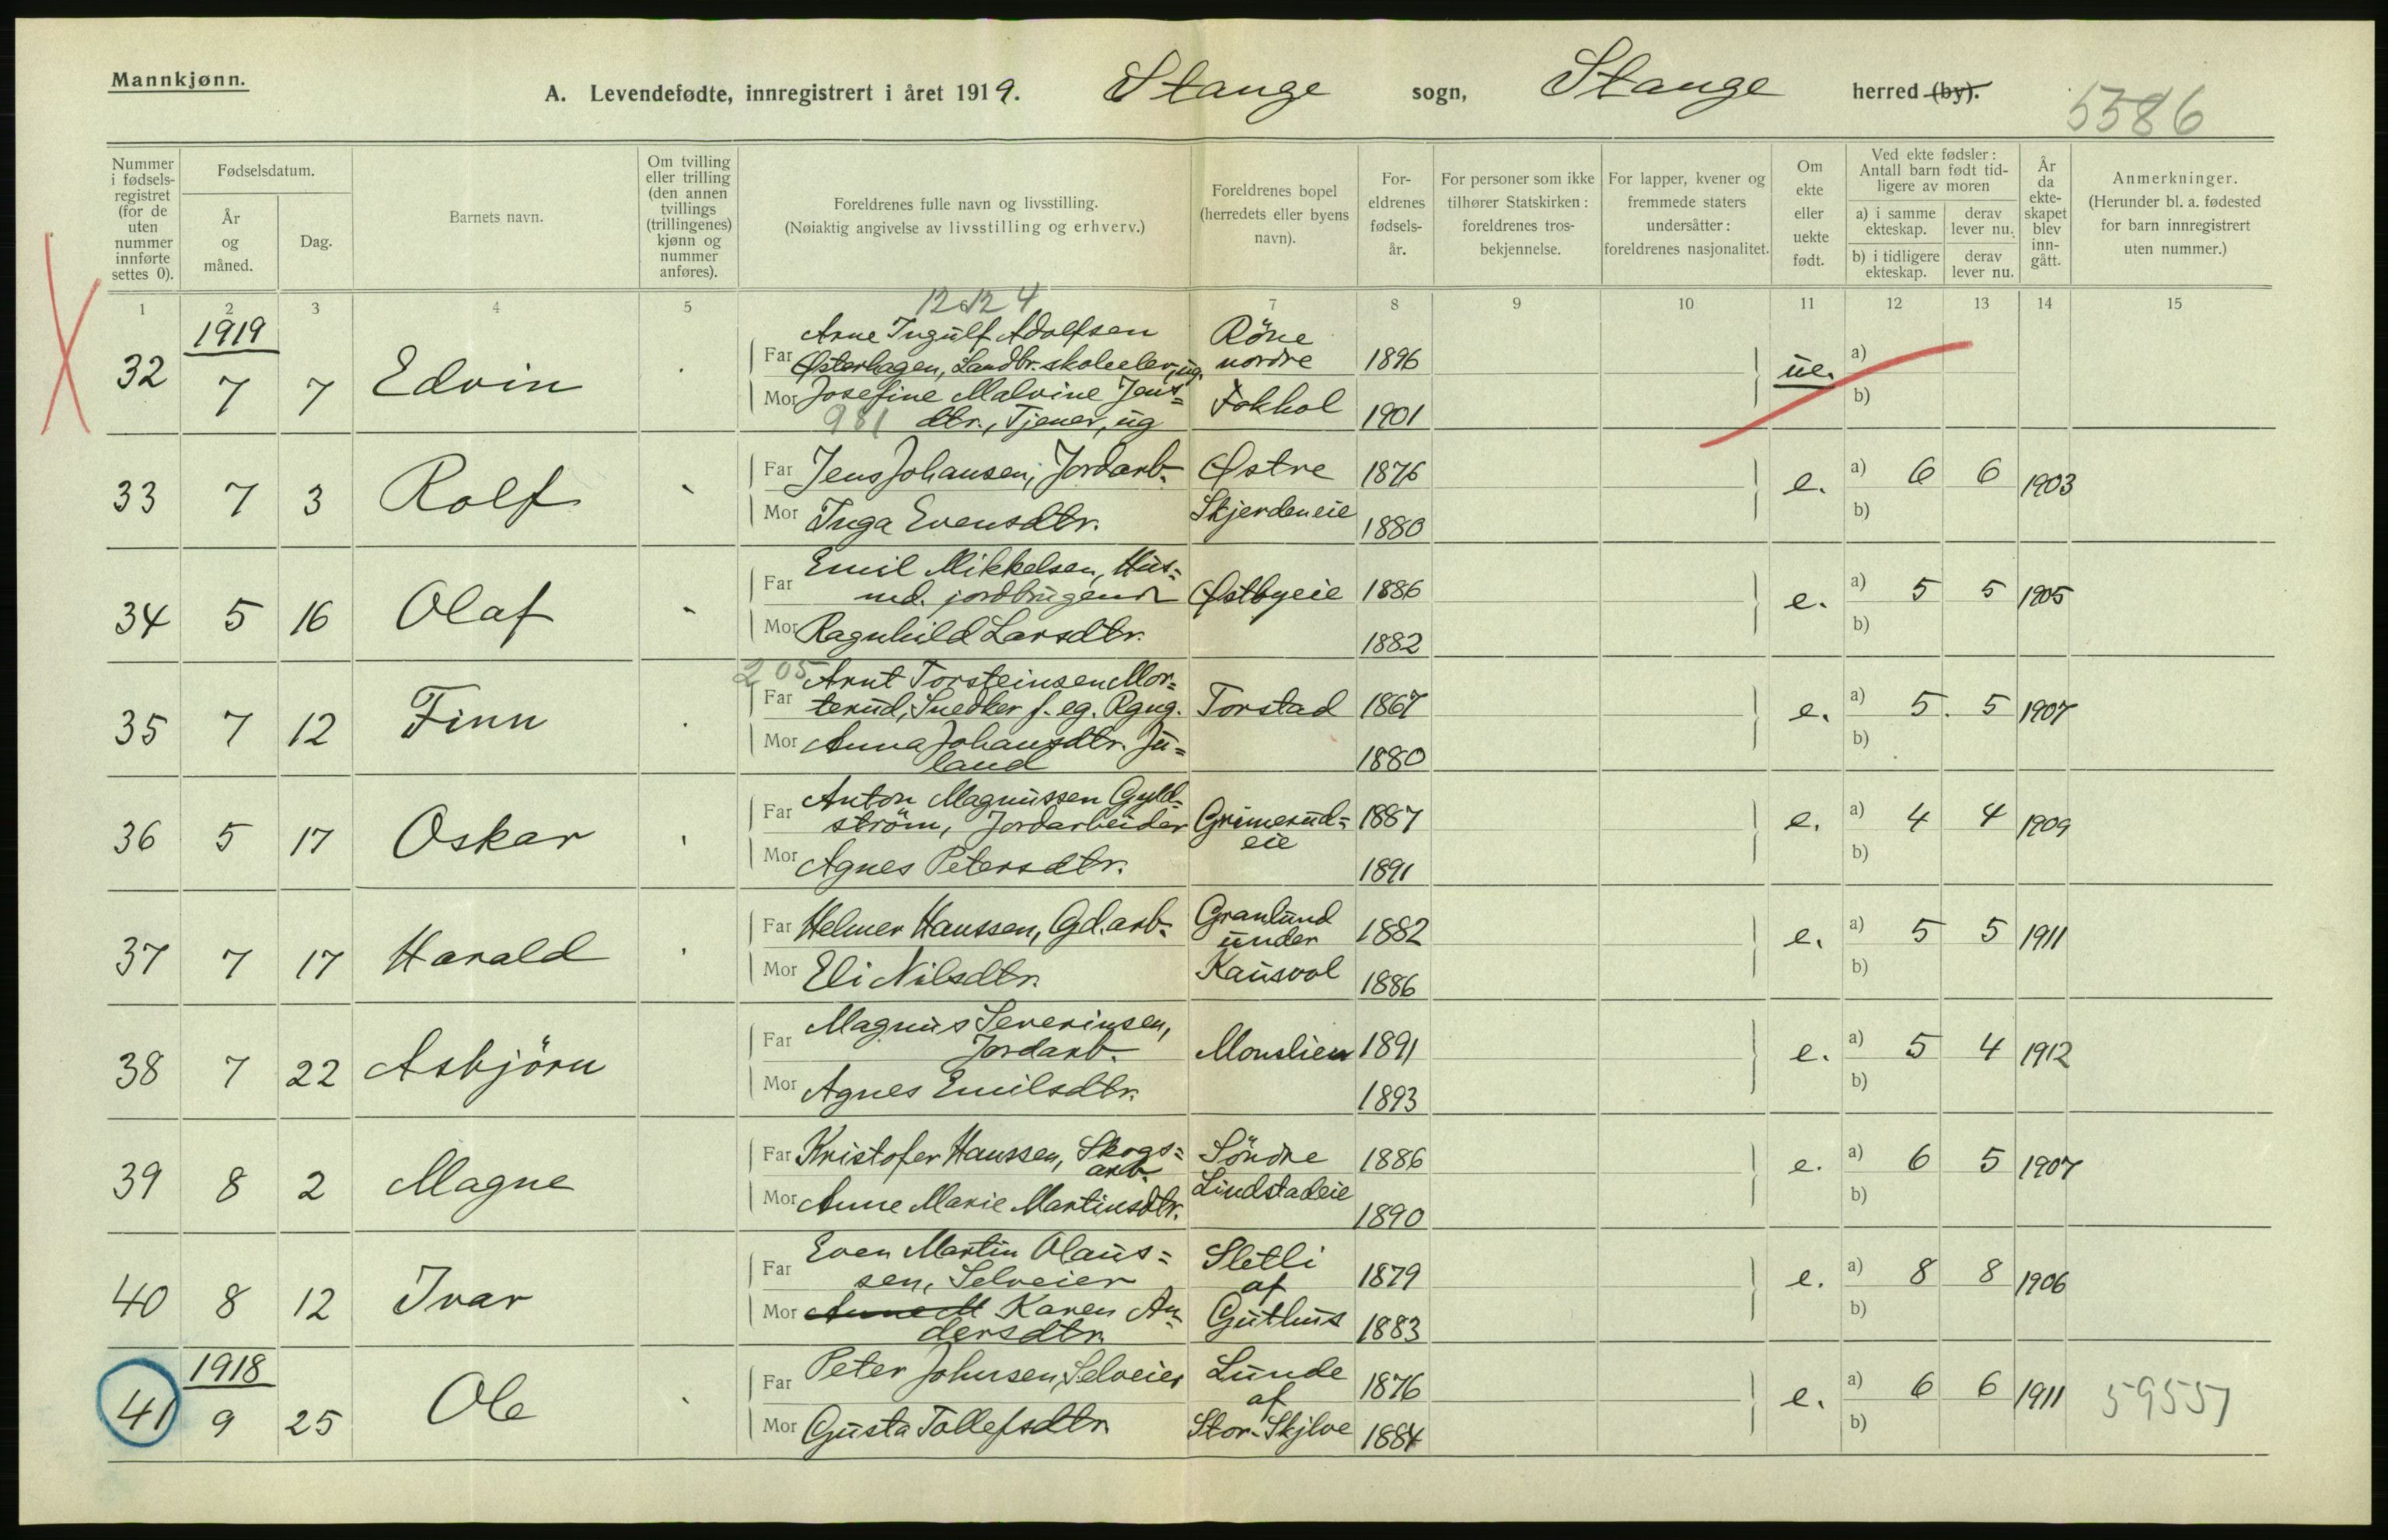 Mannkjønn.
A. Levendefødte, innregistrert i året 1919. Stange sogn, Stange herred (by).
5586
Nummer i fødsels-registret (for de uten nummer innførte settes 0).
Fødselsdatum.
År og måned.
Dag.
Barnets navn.
Om tvilling eller trilling (den annen tvillings (trillingenes) kjønn og nummer anføres).
Foreldrenes fulle navn og livsstilling.
(Nøiaktig angivelse av livsstilling og erhverv.)
Foreldrenes bopel (herredets eller byens navn).
For-eldrenes fødsels-år.
For personer som ikke tilhører Statskirken: foreldrenes tros-bekjennelse.
For lapper, kvener og fremmede staters undersåtter: foreldrenes nasjonalitet.
Om ekte eller uekte født.
Ved ekte fødsler: Antall barn født tid-ligere av moren
a) i samme ekteskap.
derav lever nu.
b) i tidligere ekteskap.
derav lever nu.
År da ekte-skapet blev inn-gått.
Anmerkninger.
(Herunder bl. a. fødested for barn innregistrert uten nummer.)
1 2 3 4 5 7 8 9 10 11 12 13 14 15
1919
32 7 7 Edvin
Far Arne Ingulf Adolfsen
Østerhagen, Landbr.skoleelev, ug.
Röne nordre 1896
Mor Josefine Malvine Jens=
981 dtr., Tjener, ug
Fokhol 1901
ue. a)
b)
33 7 3 Rolf
Far Jens Johansen, Jordarb. Østre 1876
Mor Inga Evensdtr. Skjerdeneie 1880
e. a) 6 6 1903
b)
34 5 16 Olaf
Far Emil Mikkelsen, Hus=
md. jordbrugende Østbyeie 1886
Mor Ragnhild Larsdtr. 1882
e. a) 5 5 1905
b)
205
35 7 12 Finn
Far Arnt Torsteinsen Mor=
terud, Snedker f. eg. Rgng. Torstad 1867
Mor Anna Johansdtr. Ju=
land 1880
e. a) 5. 5 1907
b)
36 5 17 Oskar
Far Anton Magnussen Gyld=
ström, Jordarbeider Grimerud= eie 1887
Mor Agnes Petersdtr. 1891
e. a) 4 4 1909
b)
37 7 17 Harald
Far Helmer Hanssen, Gd.arb. Granlund under 1882
Mor Eli Nilsdtr. Kausvol 1886
e. a) 5 5 1911
b)
38 7 22 Asbjörn
Far Magnus Severinsen,
Jordarb. Monslien 1891
Mor Agnes Emilsdtr. 1893
e. a) 5 4 1912
b)
39 8 2 Magne
Far Kristofer Hanssen, Skogs=
arb. Söndre 1886
Mor Anne Marie Martinsdtr. Lindstadeie 1890
e. a) 6 5 1907
b)
40 8 12 Ivar
Far Even Martin Olaus=
sen, Selveier Sletli af 1879
Mor Anne M Karen An=
dersdtr. Guthus 1883
e. a) 8 8 1906
b)
1918
41 9 25 Ole
Far Peter Johnsen, Selveier Lunde af 1876
Mor Gusta Tollefsdtr. Stor-Skjlve 1884
e. a) 6 6 1911
b)
59551